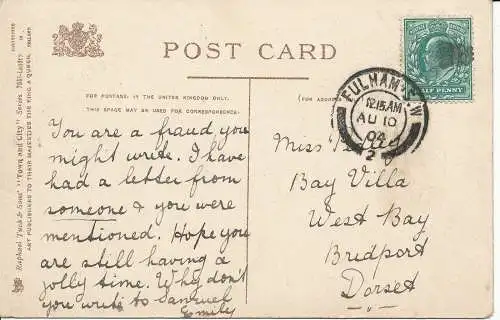 POST CARD
FOR POSTAGE IN THE UNITED KINGDOM ONLY,
THIS SPACE MAY BE USED FOR CORRESPONDENCE.
(FOR ADDRESS
HALF PENNY
FULHAM S.W
12.15AM
AU 10
04
2
Raphael Tuck & Sons' "Town and City" Series
ART PUBLISHERS TO THEIR MAJESTIES THE KING & QUEEN.
You are a fraud you
might write. I have
had a letter from
someone & you were
mentioned. Hope you
are still having a
jolly time. Why don't
you write to Samuel
Emily
Miss
Bay Villa
West Bay
Bridport
Dorset